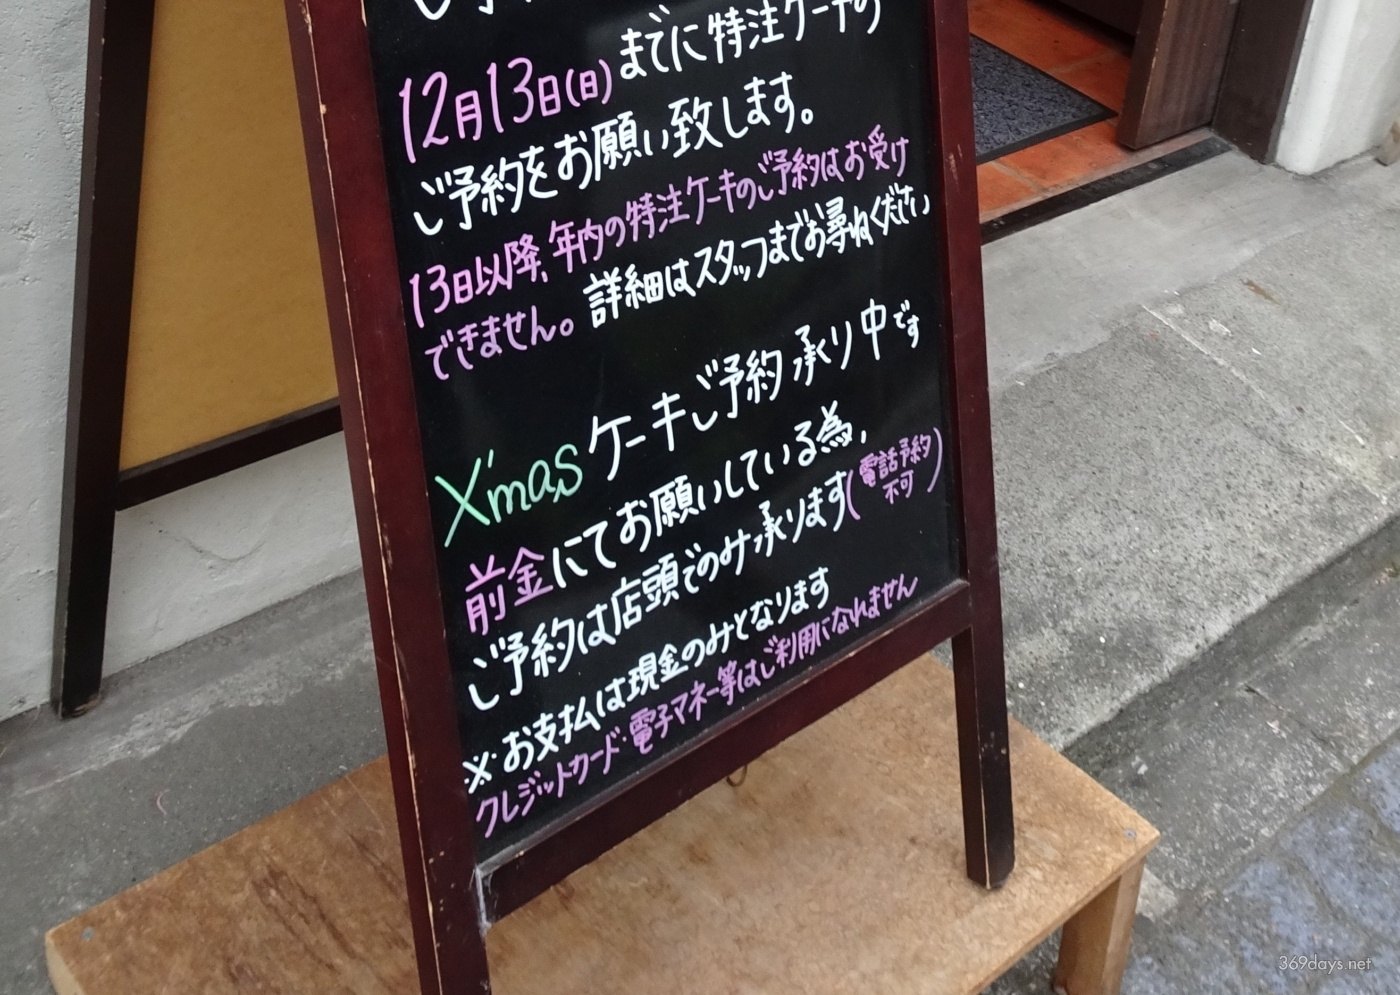 12月13日(日)までに特注ケーキの
ご予約をお願い致します。
13日以降、年内の特注ケーキのご予約はお受け
できません。詳細はスタッフまでお尋ねください
X'masケーキご予約承り中です
前金にてお願いしている為、
ご予約は店頭でのみ承ります(電話予約不可)
※お支払は現金のみとなります
クレジットカード・電子マネー等はご利用になれません
369days.net